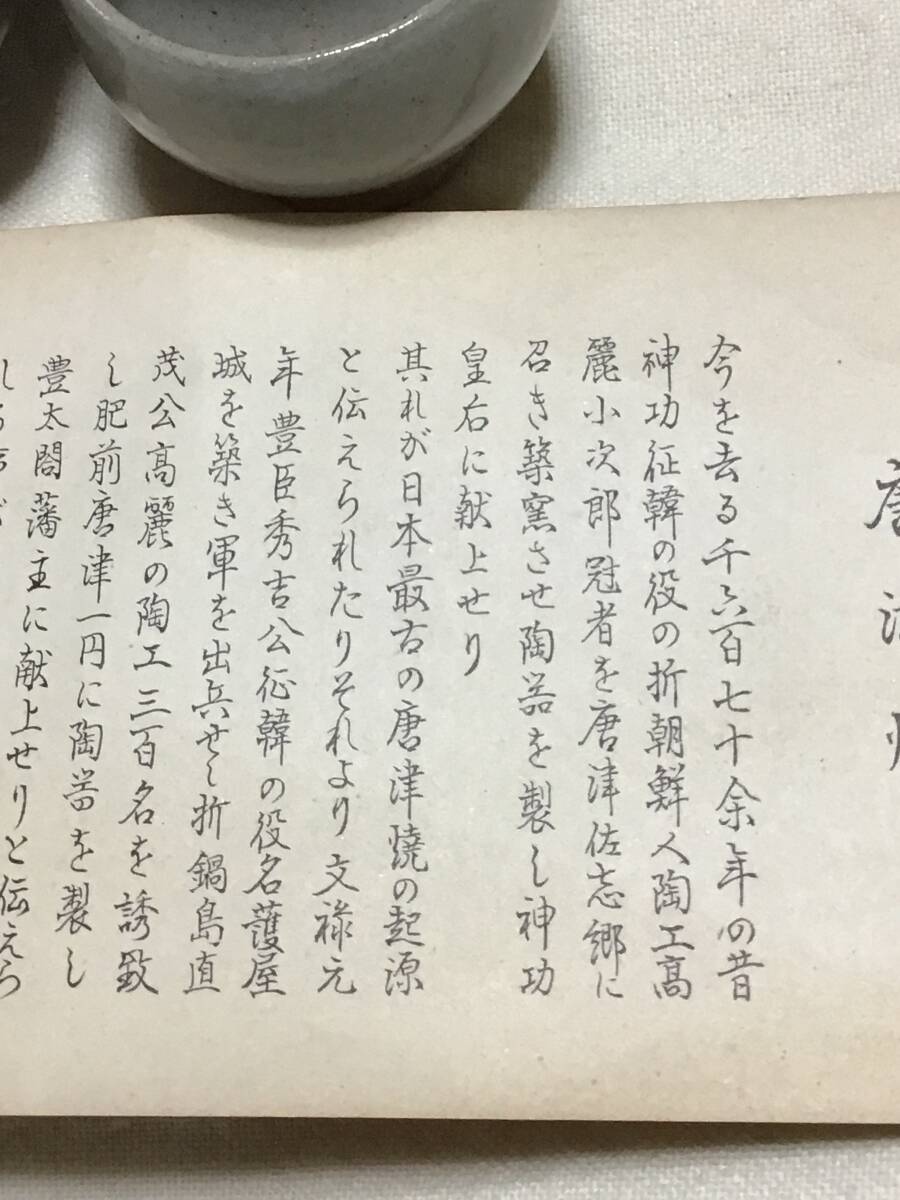 唐津焼
今を去る千六百七十余年の昔
神功征韓の役の折朝鮮人陶工高
麗小次郎冠者を唐津佐志郷に
召き築窯させ陶器を製し神功
皇后に献上せり
其れが日本最古の唐津焼の起源
と伝えられたりそれより文禄元
年豊臣秀吉公征韓の役名護屋
城を築き軍を出兵せし折鍋島直
茂公高麗の陶工三百名を誘致
し肥前唐津一円に陶器を製し
豊太閤藩主に献上せりと伝えら